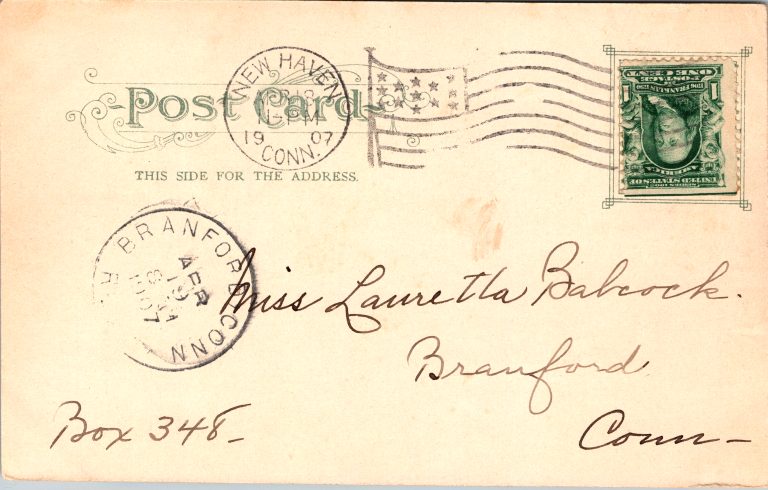 Post Card
THIS SIDE FOR THE ADDRESS.
NEW HAVEN
1907
CONN.
SERIES 1902
UNITED STATES OF AMERICA
1706 FRANKLIN 1790
POSTAGE
ONE CENT
1 1
BRANFORD CONN
APR
19
1907
Miss Lauretta Babcock.
Branford
Conn-
Box 348-